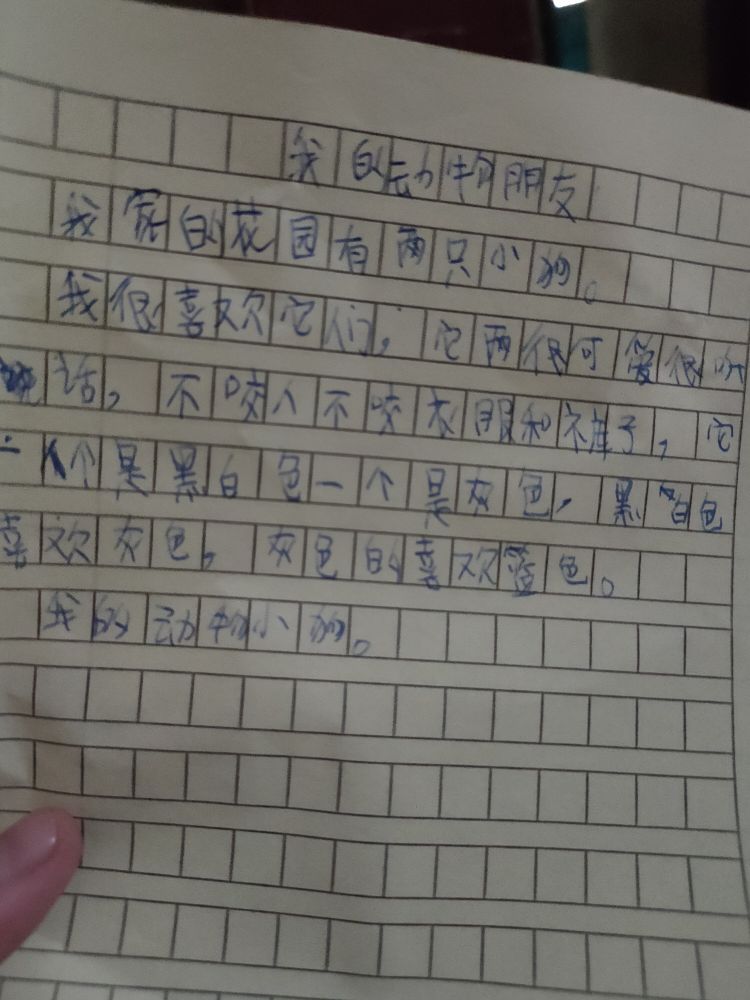 我的动物朋友
我家的花园有两只小狗。
我很喜欢它们，它两很可爱很听
话，不咬人不咬衣服和裤子，它
一个是黑白色一个是灰色，黑白色
喜欢灰色，灰色的喜欢蓝色。
我的动物小狗。